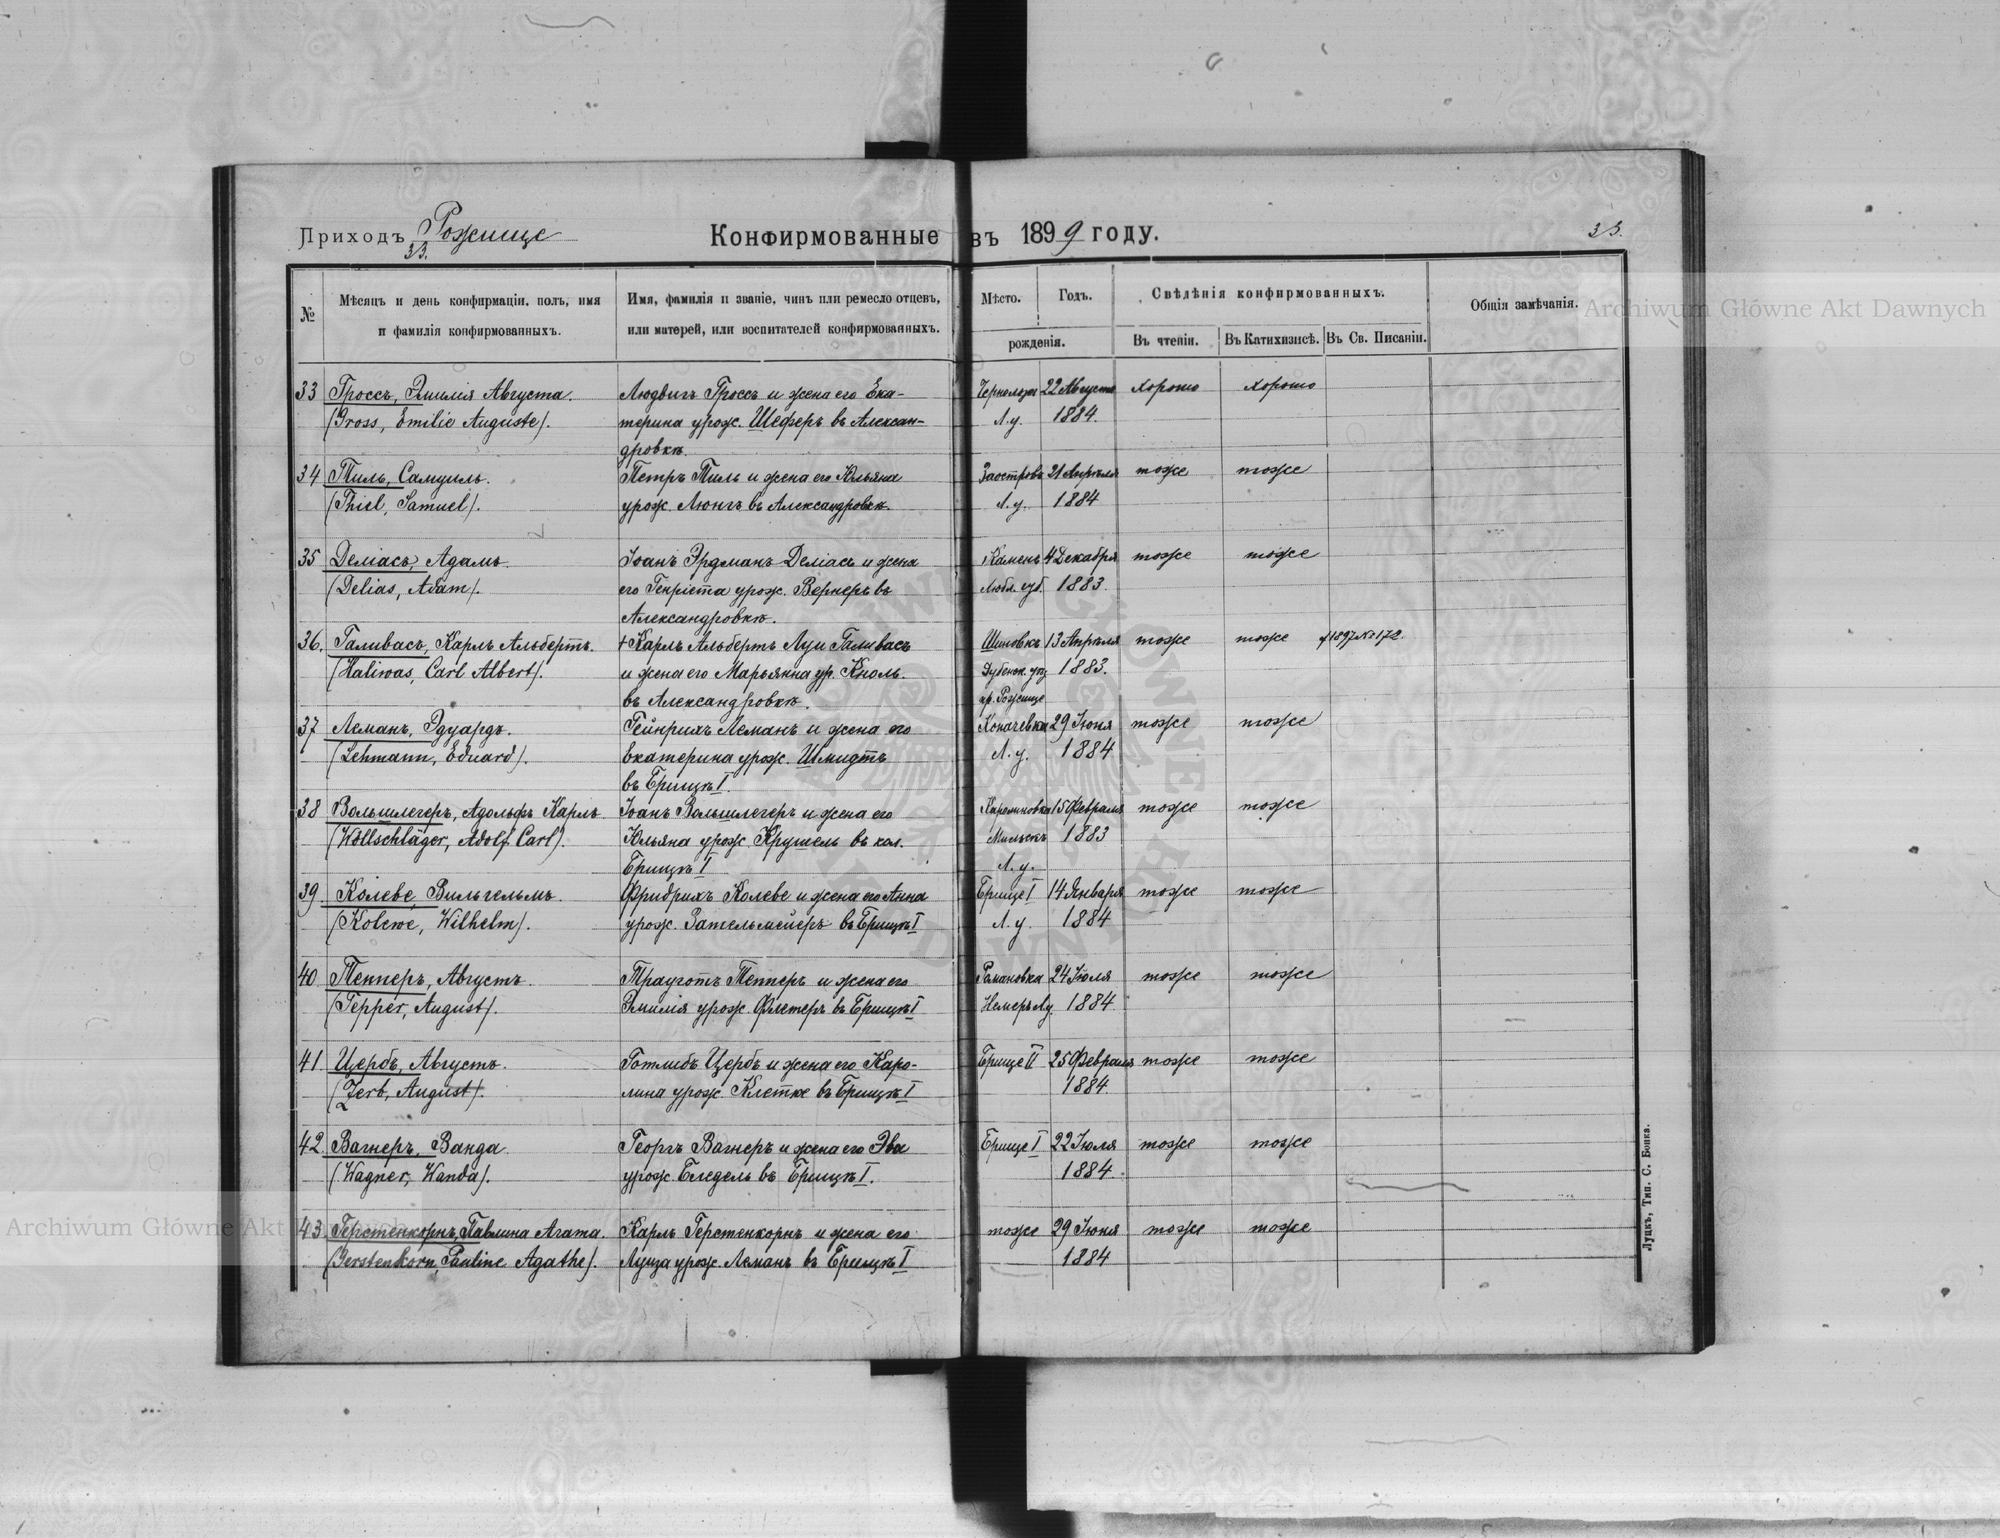 Приходъ Рожище
33.
Конфирмованные въ 1899 году.
33.
№
Мѣсяцъ и день конфирмаціи, полъ, имя
и фамилія конфирмованныхъ.
Имя, фамилія и званіе, чинъ или ремесло отцевъ,
или матерей, или воспитателей конфирмованныхъ.
Мѣсто.
Годъ.
рожденія.
Свѣдѣнія конфирмованныхъ.
Въ чтеніи.
Въ Катихизисѣ.
Въ Св. Писаніи.
Общія замѣчанія.
33 Гроссъ, Эмилія Августа. Людвигъ Гроссъ и жена его Ека- 22 Августа хорошо хорошо
(Gross, Emilie Auguste). терина урож. Шеферъ въ Алексан- Л.у. 1884.
дровкѣ.
34 Тиль, Самуилъ. Петръ Тиль и жена его Юльяна Заостровъ 21 Апрѣля тоже тоже
(Thiel, Samuel). урож. Люнгъ въ Александровкѣ. Л.у. 1884
35 Деліасъ, Адамъ. Іоанъ Эрдманъ Деліасъ и жена Камень 4 Декабря тоже тоже
(Delias, Adam). его Генріета урож. Вернеръ въ Любл. губ. 1883.
Александровкѣ.
36. Галивасъ, Карлъ Альбертъ. + Карлъ Альбертъ Луи Галивасъ 13 Апрѣля тоже тоже 1897 № 172.
(Haliwas, Carl Albert). и жена его Марьянна ур. Кноль. Дубенск. у. 1883.
въ Александровкѣ. пр. Рожище
37 Леманъ, Эдуардъ. Гейнрихъ Леманъ и жена его Копачевка 29 Іюня тоже тоже
(Lehmann, Eduard). Екатерина урож. Шмидтъ Л.у. 1884
въ Грищѣ I.
38 Вольшлегеръ, Адольфъ Карлъ. Іоанъ Вольшлегеръ и жена его Каролиновка 15 Февраля тоже тоже
(Wollschläger, Adolf Carl). Юльяна урож. Крушель въ кол. 1883
Грищѣ I Л.у.
39 Колеве, Вильгельмъ. Фридрихъ Колеве и жена его Анна Грище I 14 Января тоже тоже
(Kolewe, Wilhelm). урож. Зательмейеръ въ Грищѣ I Л.у. 1884
40 Тепперъ, Августъ. Трауготъ Тепперъ и жена его Романовка 24 Іюля тоже тоже
(Tepper, August). Эмилія урож. Флетеръ въ Грищѣ I 1884.
41 Цербъ, Августъ. Готлибъ Цербъ и жена его Каро- Грище II 25 Февраля тоже тоже
(Zerb, August). лина урож. Клетке въ Грищѣ I 1884.
42. Вагнеръ, Ванда. Георгъ Вагнеръ и жена его Эва Грище I 22 Іюля тоже тоже
(Wagner, Wanda). урож. Бледель въ Грищѣ I. 1884.
43. Герстенкорнъ, Павлина Агата. Карлъ Герстенкорнъ и жена его тоже 29 Іюня тоже тоже
(Gerstenkorn, Pauline Agathe). Луиза урож. Леманъ въ Грищѣ I 1884
Луцкъ, Тип. С. Бонка.
Archiwum Główne Akt Dawnych
Archiwum Główne Akt Dawnych